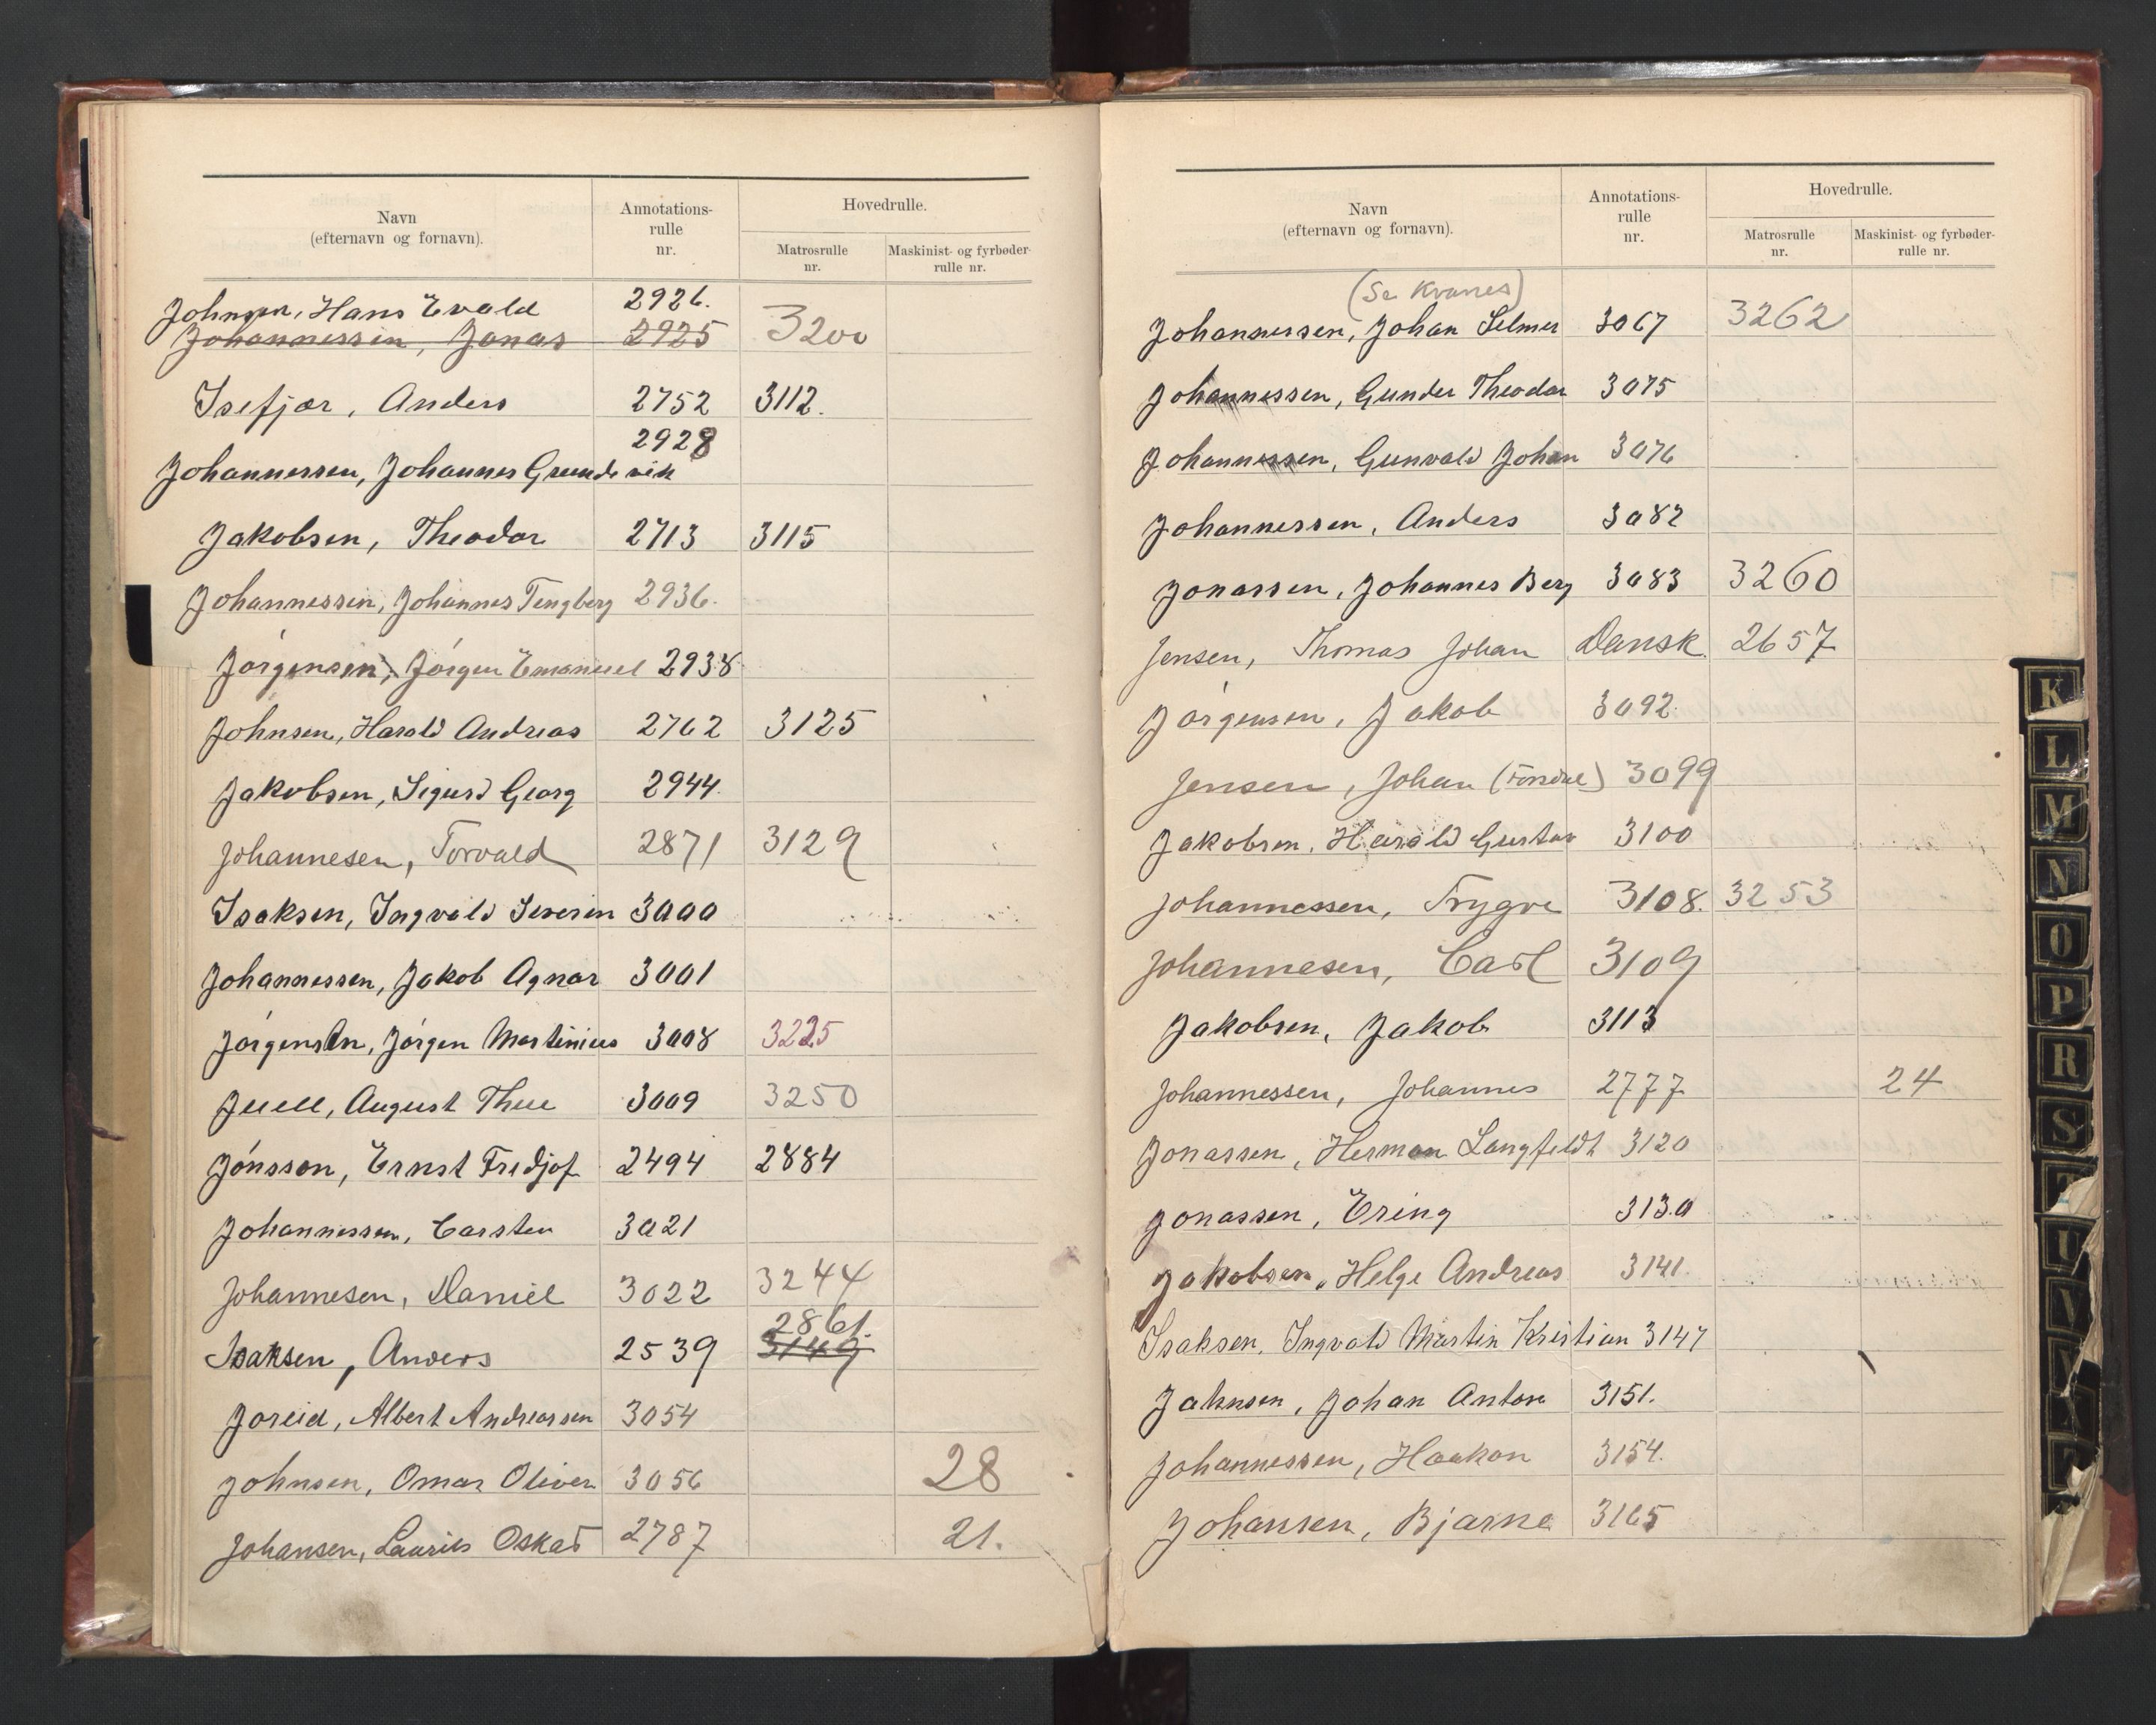 Navn
(efternavn og fornavn).
Annotations-
rulle
nr.
Hovedrulle.
Matrosrulle
nr.
Maskinist- og fyrbøder-
rulle nr.
Johnsen, Hans Evald 2926.
Johannessen, Jonas 2925 3200
Isefjær, Anders 2752 3112.
2928
Johannessen, Johannes Grundevik
Jakobsen, Theodor 2713 3115
Johannessen, Johannes Tengberg 2936.
Jørgensen, Jørgen Emanuel 2938
Johnsen, Harald Andreas 2762 3125
Jakobsen, Sigurd Georg 2944.
Johannesen, Torvald 2871 3129
Isaksen, Ingvald Severin 3000
Johannessen, Jakob Agnar 3001
Jørgensen, Jørgen Martinius 3008 3225
Juell, August Thue 3009 3250
Jónsson, Ernst Fredjof 2494 2884
Johannessen, Carsten 3021
Johannesen, Daniel 3022 3244
2861.
Isaksen, Anders 2539 3149
Joreid, Albert Andreassen 3054
Johnsen, Omar Oliver 3056 28
Johansen, Laurits Oskar 2787 21.
Navn
(efternavn og fornavn).
Annotations-
rulle
nr.
Hovedrulle.
Matrosrulle
nr.
Maskinist- og fyrbøder-
rulle nr.
(Se Kvanes)
Johannessen, Johan Selmer 3067 3262
Johannessen, Gunder Theodor 3075
Johannessen, Gunvald Johan 3076
Johannessen, Anders 3082
Jonassen, Johannes Berg 3083 3260
Jensen, Thomas Johan Dansk 2657
Jørgensen, Jakob 3092.
Jensen, Johan 3099
Jakobsen, Harald Gustav 3100
Johannessen, Trygve 3108. 3253
Johannesen, Carl 3109
Jakobsen, Jakob 3113
Johannessen, Johannes 2777 24
Jonassen, Herman Langfeldt 3120
Jonassen, Ering 3130
Jakobsen, Helge Andreas 3141.
Isaksen, Ingvald Martin Kristian 3147
Jahnsen, Johan Anton 3151.
Johannessen, Haakon 3154.
Johansen, Bjarne 3165
K
L
M
N
O
P
R
S
T
U
V